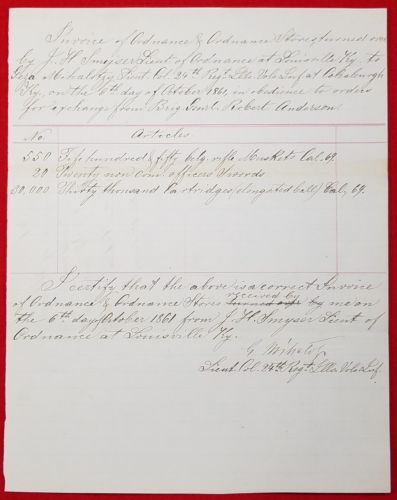 Invoice of Ordnance & Ordnance Stores turned over
by J. H. Smyser Lieut of Ordnance at Louisville Ky. to
Geza Mihalotzy Lieut. Col. 24th Regt Ills. Vols Inf at Colesburgh
Ky. on the 6th day of October 1861, in obedience to orders
for exchange from Brig Genl. Robert Anderson
No. Articles
550 Five hundred & fifty belg. rifle Muskets Cal. 69.
20 Twenty non com. officers Swords
30,000 Thirty thousand Cartridges (elongated ball) Cal. 69.
I certify that the above is a correct Invoice
received by
of Ordnance & Ordnance Stores turned over by me on
the 6th day of October 1861 from J. H. Smyser Lieut of
Ordnance at Louisville Ky.
G. Mihalotzy
Lieut Col. 24th Regt Ills Vols Inf.